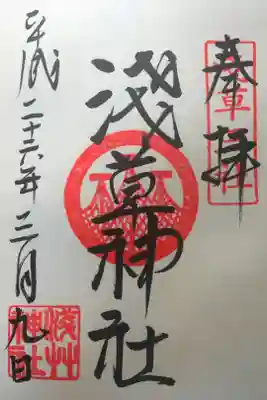 奉拝
浅草神社
平成二十六年三月九日